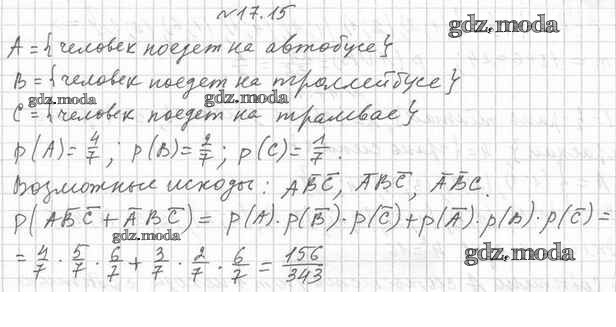 №17.15
gdz.moda
A = {человек поедет на автобусе}
B = {человек поедет на троллейбусе}
gdz.moda gdz.moda
C = {человек поедет на трамвае}
p(A) = 4/7; p(B) = 2/7; p(C) = 1/7.
Возможные исходы: AB̅C̅, A̅BC̅, A̅B̅C.
p(AB̅C̅ + A̅BC̅) = p(A)·p(B̅)·p(C̅) + p(A̅)·p(B)·p(C̅) =
gdz.moda
= 4/7 · 5/7 · 6/7 + 3/7 · 2/7 · 6/7 = 156/343
gdz.moda